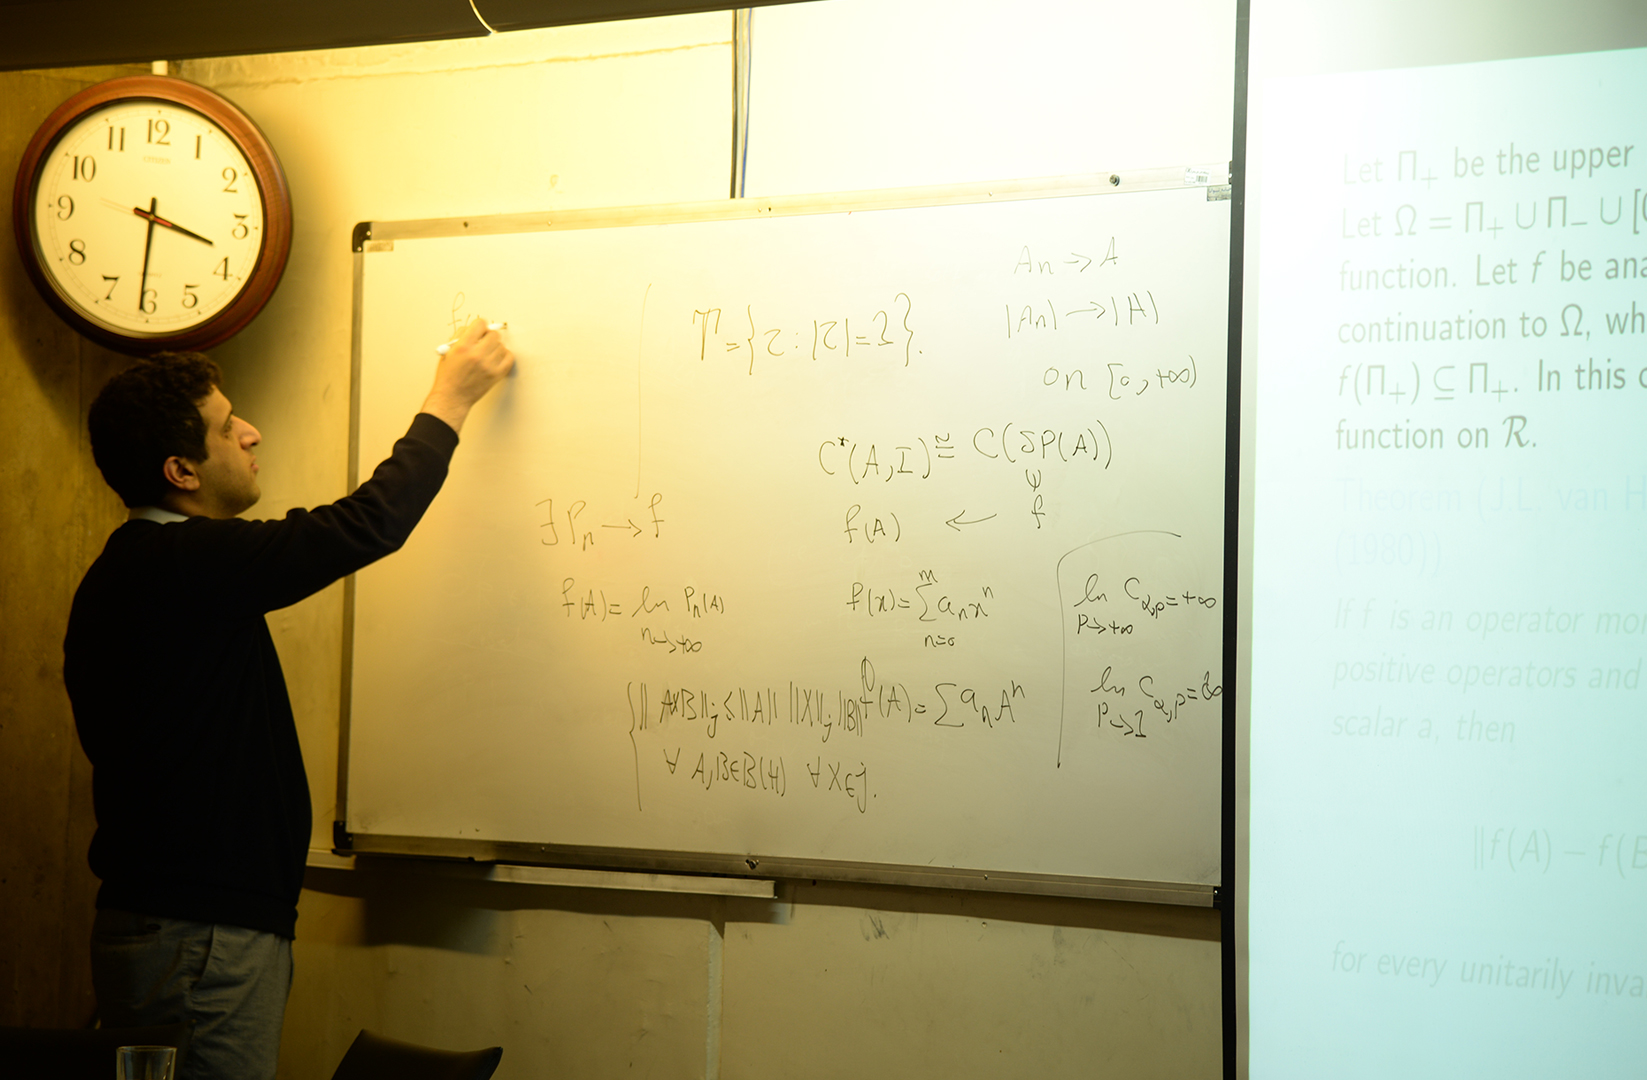 12
1
2
3
4
5
6
7
8
9
10
11
CITIZEN
f(
𝕋={z:|z|=1}.
An → A
|An| → |A|
on [0,+∞)
C*(A,I) ≅ C(SP(A))
ψ
f(A) ← f
∃ Pn → f
f(A)= lim Pn(A)
n→+∞
f(x)= Σ aₙxⁿ
m
n=0
f(A)= Σ aₙAⁿ
‖AXB‖j ≤ ‖A‖ ‖X‖j ‖B‖
∀ A,B∈B(H) ∀X∈j.
lim Cα,p=+∞
p→+∞
lim Cα,p=∞
p→1
Let Π₊ be the upper
Let Ω = Π₊ ∪ Π₋ ∪ [
function. Let f be ana
continuation to Ω, wh
f(Π₊) ⊆ Π₊. In this
function on ℛ.
Theorem (J.L. van H
(1980))
If f is an operator mo
positive operators and
scalar a, then
‖f(A) − f(B
for every unitarily inva